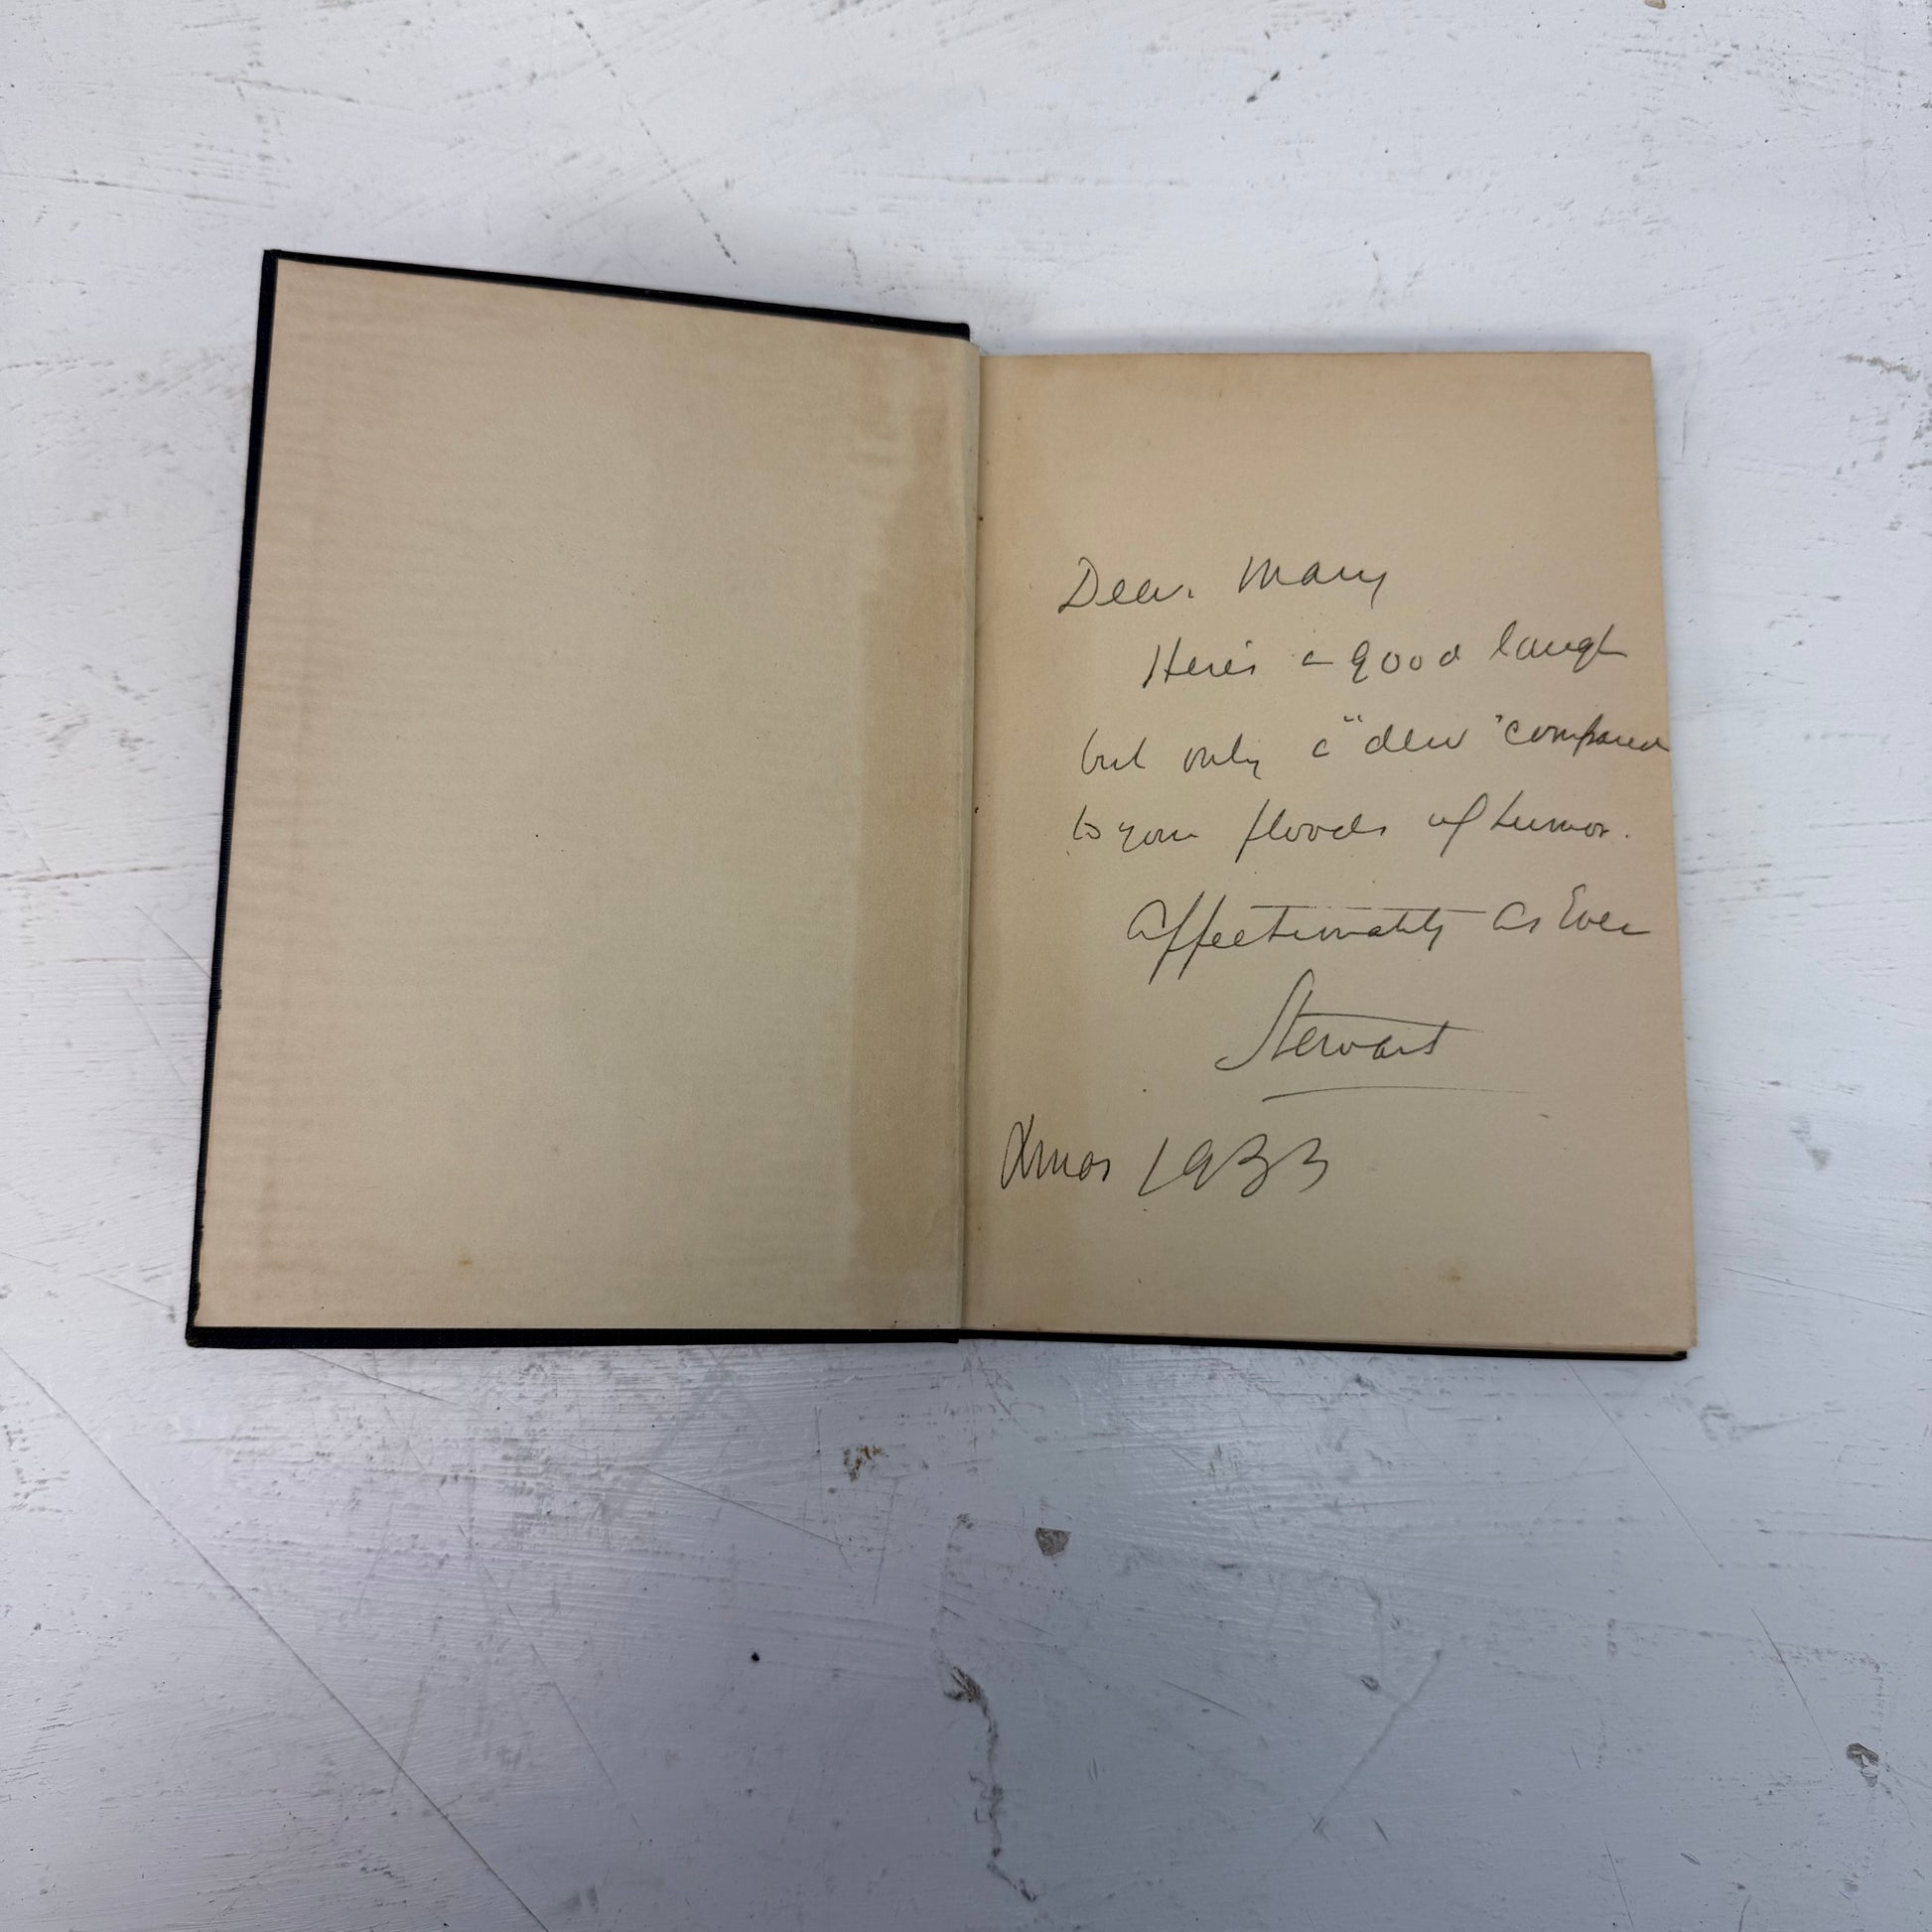 Dear Mary
Here's a good laugh
but only a "dew" compared
to your floods of humor.
Affectionately as Ever
Stewart
Xmas 1933